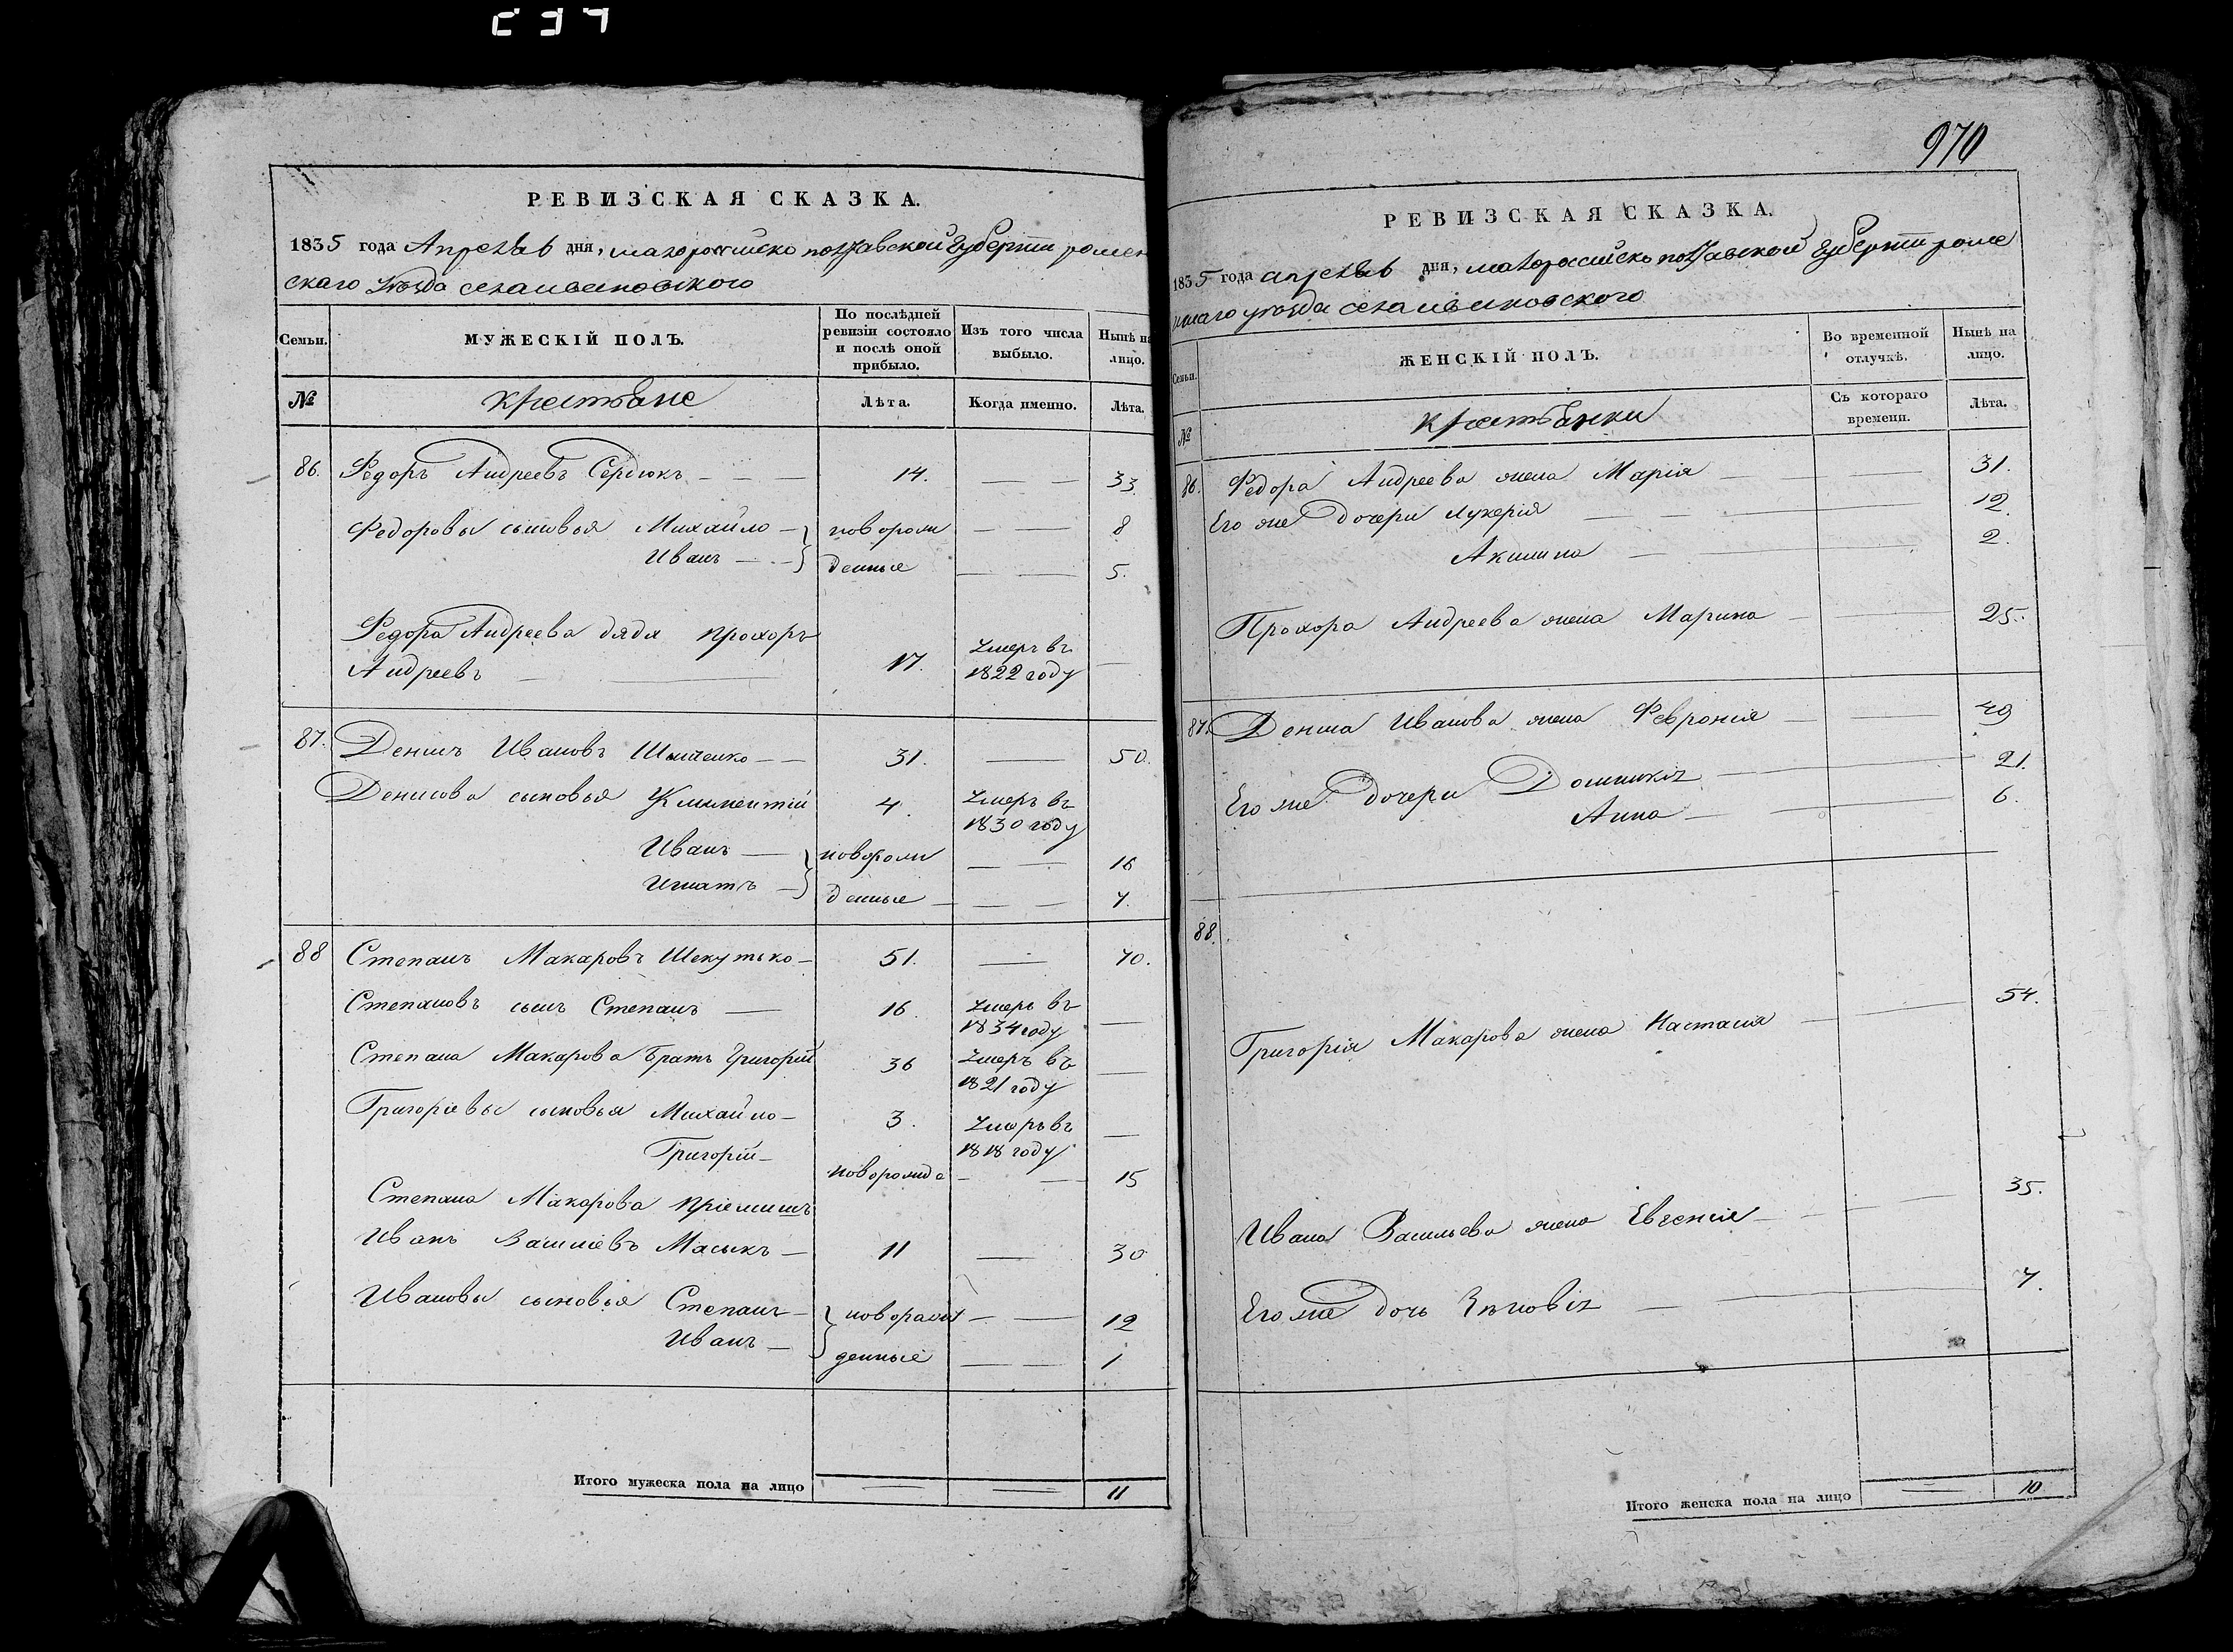 РЕВИЗСКАЯ СКАЗКА.
1835 года Апреля 6 дня, малоросийско полтавской Губернии ромен
скаго уезда села
Семьи.
МУЖЕСКІЙ ПОЛЪ.
По послѣдней ревизіи состояло и послѣ оной прибыло.
Изъ того числа выбыло.
Нынѣ на лицо.
№
крестьяне
Лѣта.
Когда именно.
Лѣта.
86. Федоръ Андреевъ Сердюкъ — — — 14. — — 33.
Федоровы сыновья Михайло — новорож — — 8
Иванъ — — денные — — 5.
Федора Андреева дядя Прохоръ
Андреевъ — — 17. Умеръ въ 1822 году —
87. Денисъ Ивановъ — — 31. — 50.
Денисова сыновья Климентій 4. Умеръ въ 1830 году
Иванъ — новорож — — 16
Игнатъ — денные — — — 7.
88 Степанъ Макаровъ Шекутько — 51. — 70.
Степановъ сынъ Степанъ — 16. Умеръ въ 1834 году —
Степана Макарова братъ Григорій 36 Умеръ въ 1821 году —
Григоріевы сыновья Михайло — 3. Умеръ въ 1818 году —
Григорій — новорожде — — 15
Степана Макарова пріемышъ
Иванъ Васильевъ Масыкъ — 11 — 30
Ивановы сыновья Степанъ — новорож — — 12
Иванъ — денные — — 1
Итого мужеска пола на лицо 11
970
РЕВИЗСКАЯ СКАЗКА.
1835 года апреля 6 дня, малоросийско полтавской Губернии роме
уезда села
Семьи.
ЖЕНСКІЙ ПОЛЪ.
Во временной отлучкѣ.
Нынѣ на лицо.
№
крестьянки
Съ котораго времени.
Лѣта.
86. Федора Андреева жена Марія — — 31.
Его же дочери Лукерія — — — 12.
Акилина — — — 2.
Прохора Андреева жена Марина — — 25.
87. Дениса Иванова жена Февронія — — 49
Его же дочери Домникія — — 21.
Анна — — 6.
88.
Григорія Макарова жена Настасія — — 54.
Ивана Васильева жена Евгенія — — — 35.
Его же дочь Зѣновія — — 7.
Итого женска пола на лицо 10